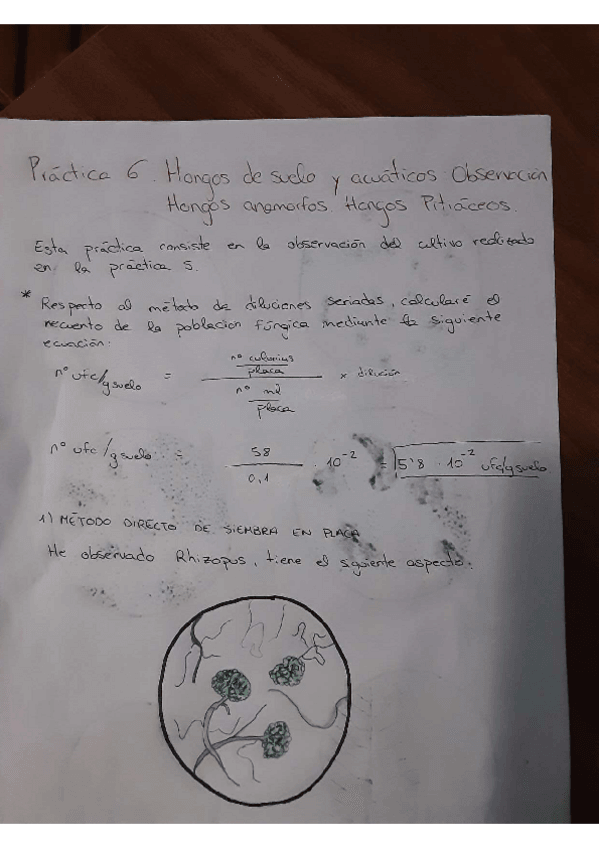 Práctica 6. Hongos de suelo y acuáticos Observación
Hongos anamorfos Hongos Pitiáceos.
Esta práctica consiste en la observación del cultivo realizado
en la práctica 5.
* Respecto al método de diluciones seriadas, calcularé el
recuento de la poblacion fúngica mediante la siguiente
ecuación:
nº colonias
placa
nº ufc/g suelo = × dilución
nº ml
placa
nº ufc/g suelo = 58 / 0,1 · 10⁻² = 5'8 · 10⁻² ufc/g suelo
1) MÉTODO DIRECTO DE SIEMBRA EN PLACA
He observado Rhizopus, tiene el siguiente aspecto: